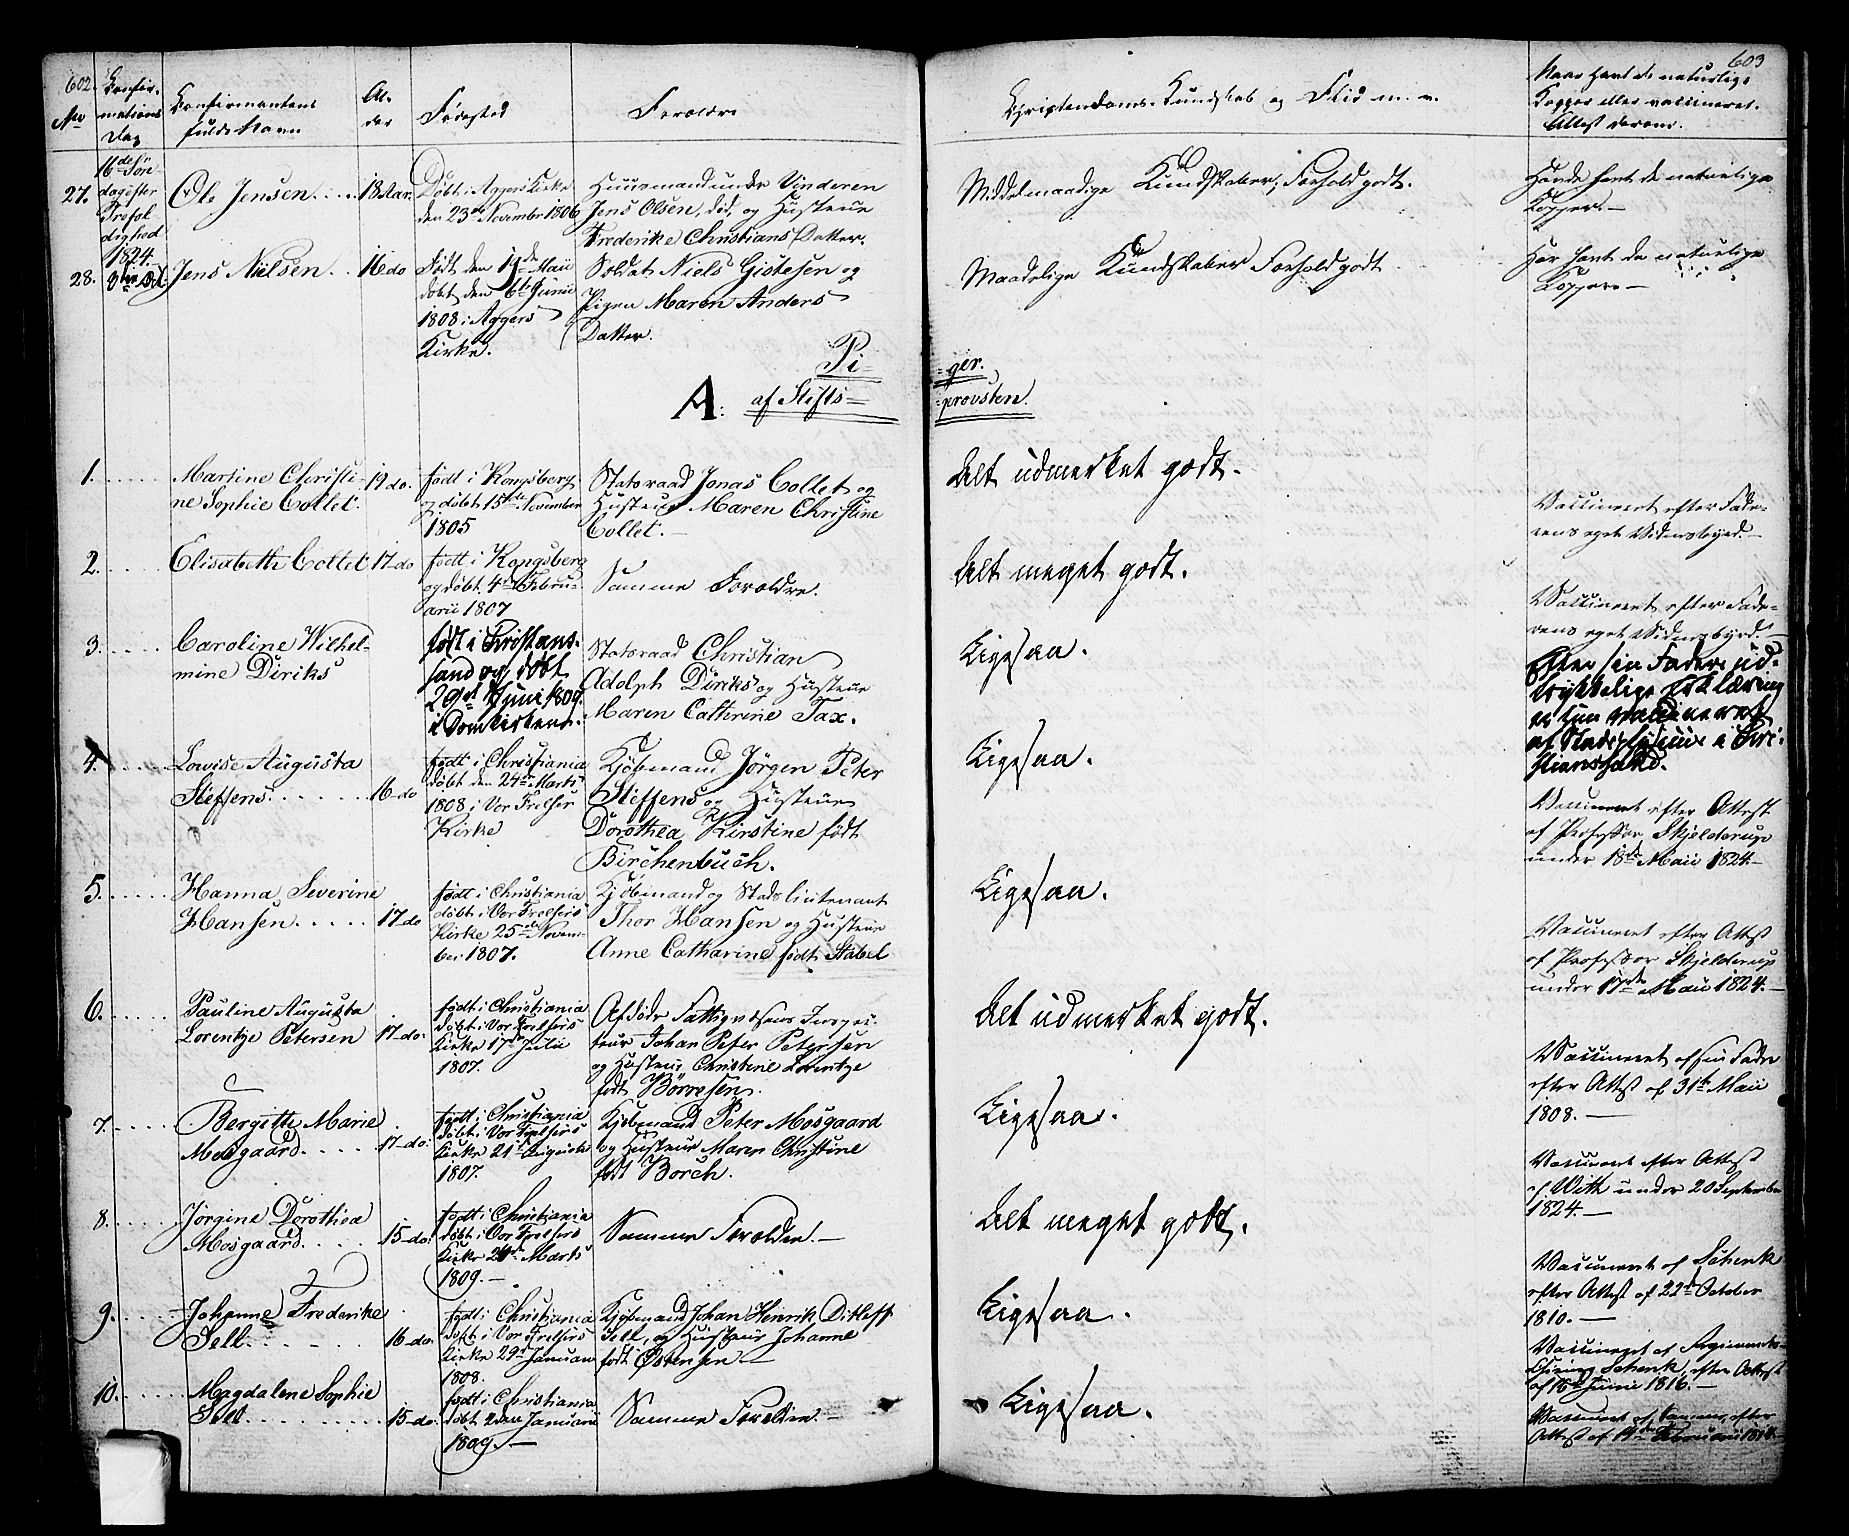 602.
No
Confir-
mations
Dag
Confirmantens
fulde Navn
Al-
der
Fødested
Forældre
27.
16de Søn-
dag efter
Trefol-
dighed
1824.
Ole Jensen
18 Aar.
Døbt i Aggers Kirke
den 23de November 1806
Huusmand under Vinderen
Jens Olsen, død, og Hustrue
Frederike Christians Datter.
28.
Jens Nielsen
16 do
Født den 19de Maii
døbt den 6te Junii
1808 i Aggers
Kirke.
Soldat Niels Gistesen og
Pigen Maren Anders
Datter.
Pi-
A: af Stifts-
1.
Martine Christi-
ne Sophie Collet.
19 do.
født i Kongsberg
og døbt 15de November
1805
Statsraad Jonas Collet og
Hustrue Maren Christine
Collet.
2.
Elisabeth Collet
17 do
født i Kongsberg
og døbt 4de Febru-
arii 1807
Samme Forældre.
3.
Caroline Wilhel-
mine Diriks
født i Christians-
sand og døbt
29de Juni 1809
i Domkirken.
Statsraad Christian
Adolph Diriks og Hustrue
Maren Cathrine Tax.
4.
Lowise Augusta
Steffens
16 do
født i Christiania
døbt den 24de Marts
1808 i Vor Frelsers
Kirke
Kjøbmand Jörgen Peter
Steffens og Hustrue
Dorothea Kirstine født
Birchenbuch.
5.
Hanna Severine
Hansen
17 do
født i Christiania
døbt i Vor Frelsers
Kirke 25de Novem-
ber 1807.
Kjøbmand og Stadslieutenant
Thor Hansen og Hustrue
Anne Catharine født Stabel
6.
Pauline Augusta
Lorentze Petersen
17 do.
født i Christiania
døbt i Vor Frelsers
Kirke 17de Julii
1807.
Afdøde Fattigvæsens Inspec-
teur Johan Peter Petersen
og Hustrue Christine Lorentze
født Börresen
7.
Bergitte Marie
Mosgaard
17 do.
født i Christiania
døbt i Vor Frelsers
Kirke 21de Auguste
1807.
Kjøbmand Peter Mosgaard
og Hustrue Maren Christine
født Borch.
8.
Jörgine Dorothea
Mosgaard
15 do.
født i Christiania
døbt i Vor Frelsers
Kirke 24de Marts
1809.
Samme Forældre.
9.
Johanne Frederike
Sell
16 do.
født i Christiania
døbt i Vor Frelsers
Kirke 29de Januari
1808.
Kjøbmand Johan Henrik Ditleff
Sell, og Hustrue Johanne
født Østensen.
10.
Magdalene Sophie
Sell
15 do.
født i Christiania
døbt 2den Januarii
1809.
Samme Forældre.
603
Christendoms-Kundskab og Flid m. v.
Naar havt de naturlige
Kopper eller vaccineret.
Attest derom.
Middelmaadige Kundskaber, Forhold godt.
Havde havt de naturlige
Kopper.
Maadelige Kundskaber Forhold godt
Har havt de naturlige
Kopper.
-ger.
-provsten.
Alt udmerket godt.
Vaccineret efter Fade-
rens eget Vidnesbyrd.
Alt meget godt.
Vaccineret efter Fade-
rens eget Vidnesbyrd.
Ligesaa.
Efter sin Faders ud-
trykkelige Erklæring
er hun vaccineret
af Stadsphysicus i Chri-
stianssand.
Ligesaa.
Vaccineret efter Attest
af Professor Skjelderup
under 18de Maii 1824.
Ligesaa.
Vaccineret efter Attest
af Professor Skjelderup
under 17de Maii 1824.
Alt udmerket godt.
Vaccineret af sin Fader
efter Attest af 31te Maii
1808.
Ligesaa.
Vaccineret efter Attest
af With under 20 September
1824.
Alt meget godt.
Vaccineret af Schenk
efter Attest af 22de October
1810.
Ligesaa.
Vaccineret af Regiments-
Chirurg Schenk, efter Attest
af 16de Junii 1816.
Ligesaa.
Vaccineret af Samme, efter
Attest af Februarii